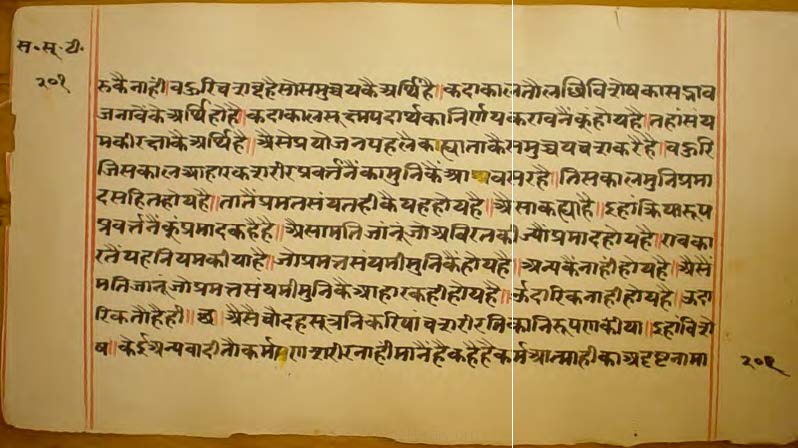 स॰सू॰टी॰
२०१
रुकै नाहीं॥ वहुरि च शब्द है सो समुच्चयकै अर्थि है॥ कदाकाल तौ लब्धिविशेषका सद्भाव
जनावैंकै अर्थि होहै॥ कदाकाल सूक्ष्मपदार्थका निर्णय करावनैंकूं होय है॥ तहां संय
मकी रक्षाकै अर्थि है॥ अैसे प्रयोजन पहलै कह्या ताकै समुच्चय च शब्द करै है॥ वहुरि
जिसकाल आहारक शरीर प्रवर्त्तनैंका मुनिकैं अवसर है॥ तिसकाल मुनि प्रमा
दसहित होय है॥ तातैं प्रमत्तसंयतहीकै यह होय है॥ अैसा कह्या है॥ इहां क्रियारूप
प्रवर्त्तनैंकूं प्रमाद कहै है॥ अैसा मति जांनूं जो अविरतकी ज्यों प्रमाद होय है॥ एवका
रतैं यह नियम कीया है॥ जो प्रमत्तसंयमी मुनिकै होय है॥ अन्यकैं नाही होय है॥ अैसैं
मति जानूं जो प्रमत्तसंयमी मुनिकै आहारकही होय है॥ ऊदारिक नाही होय है॥ ऊदा
रिक तौ है ही॥ छ॥ अैसैं चोदह सूत्रनिकरि पांच शरीरनिका निरूपण कीया॥ इहां विशे
ष॥ केई अन्यवादी तौ कार्माण शरीर नाही मानैं है कहै है कर्म आत्माहीका अदृष्टनामा
२०१